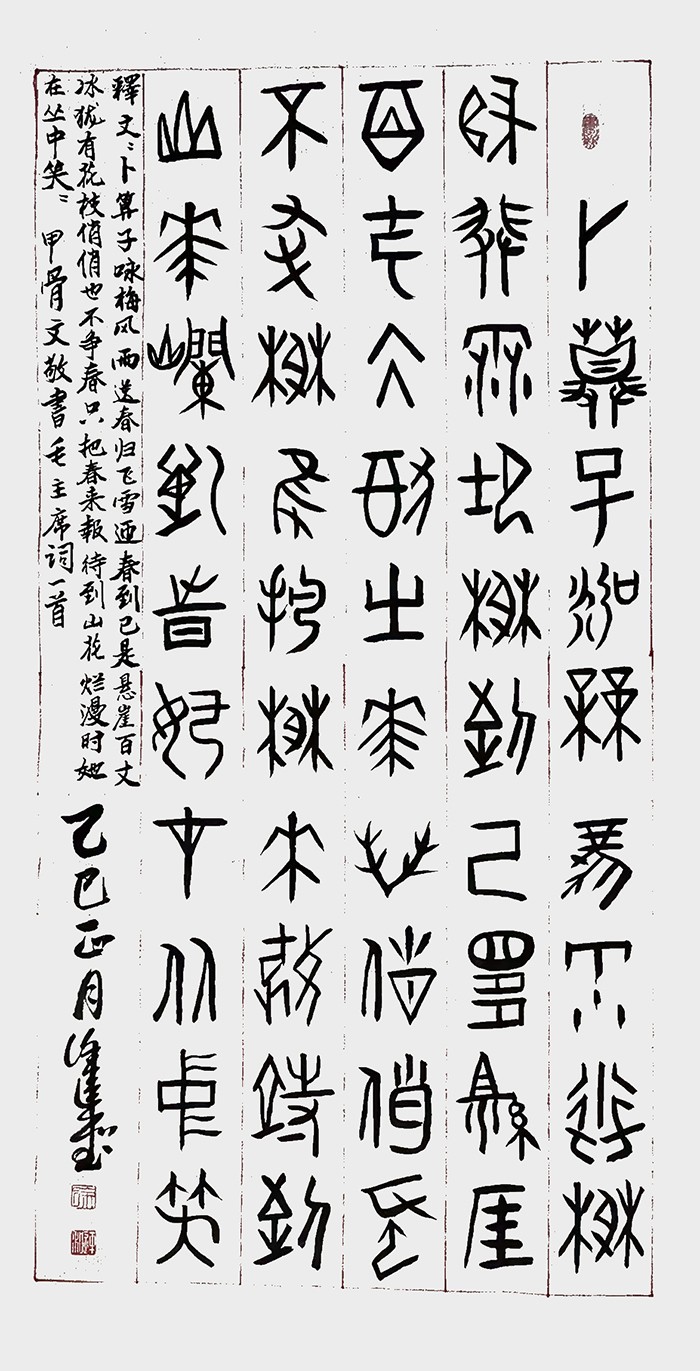 卜算子咏梅风雨送春
归飞雪迎春到已是悬崖
百丈冰犹有花枝俏俏也
不争春只把春来報待到
山花烂漫时她在丛中笑
釋文：卜算子咏梅风雨送春归飞雪迎春到已是悬崖百丈
冰犹有花枝俏俏也不争春只把春来報待到山花烂漫时她
在丛中笑 甲骨文敬書毛主席词一首
乙巳正月